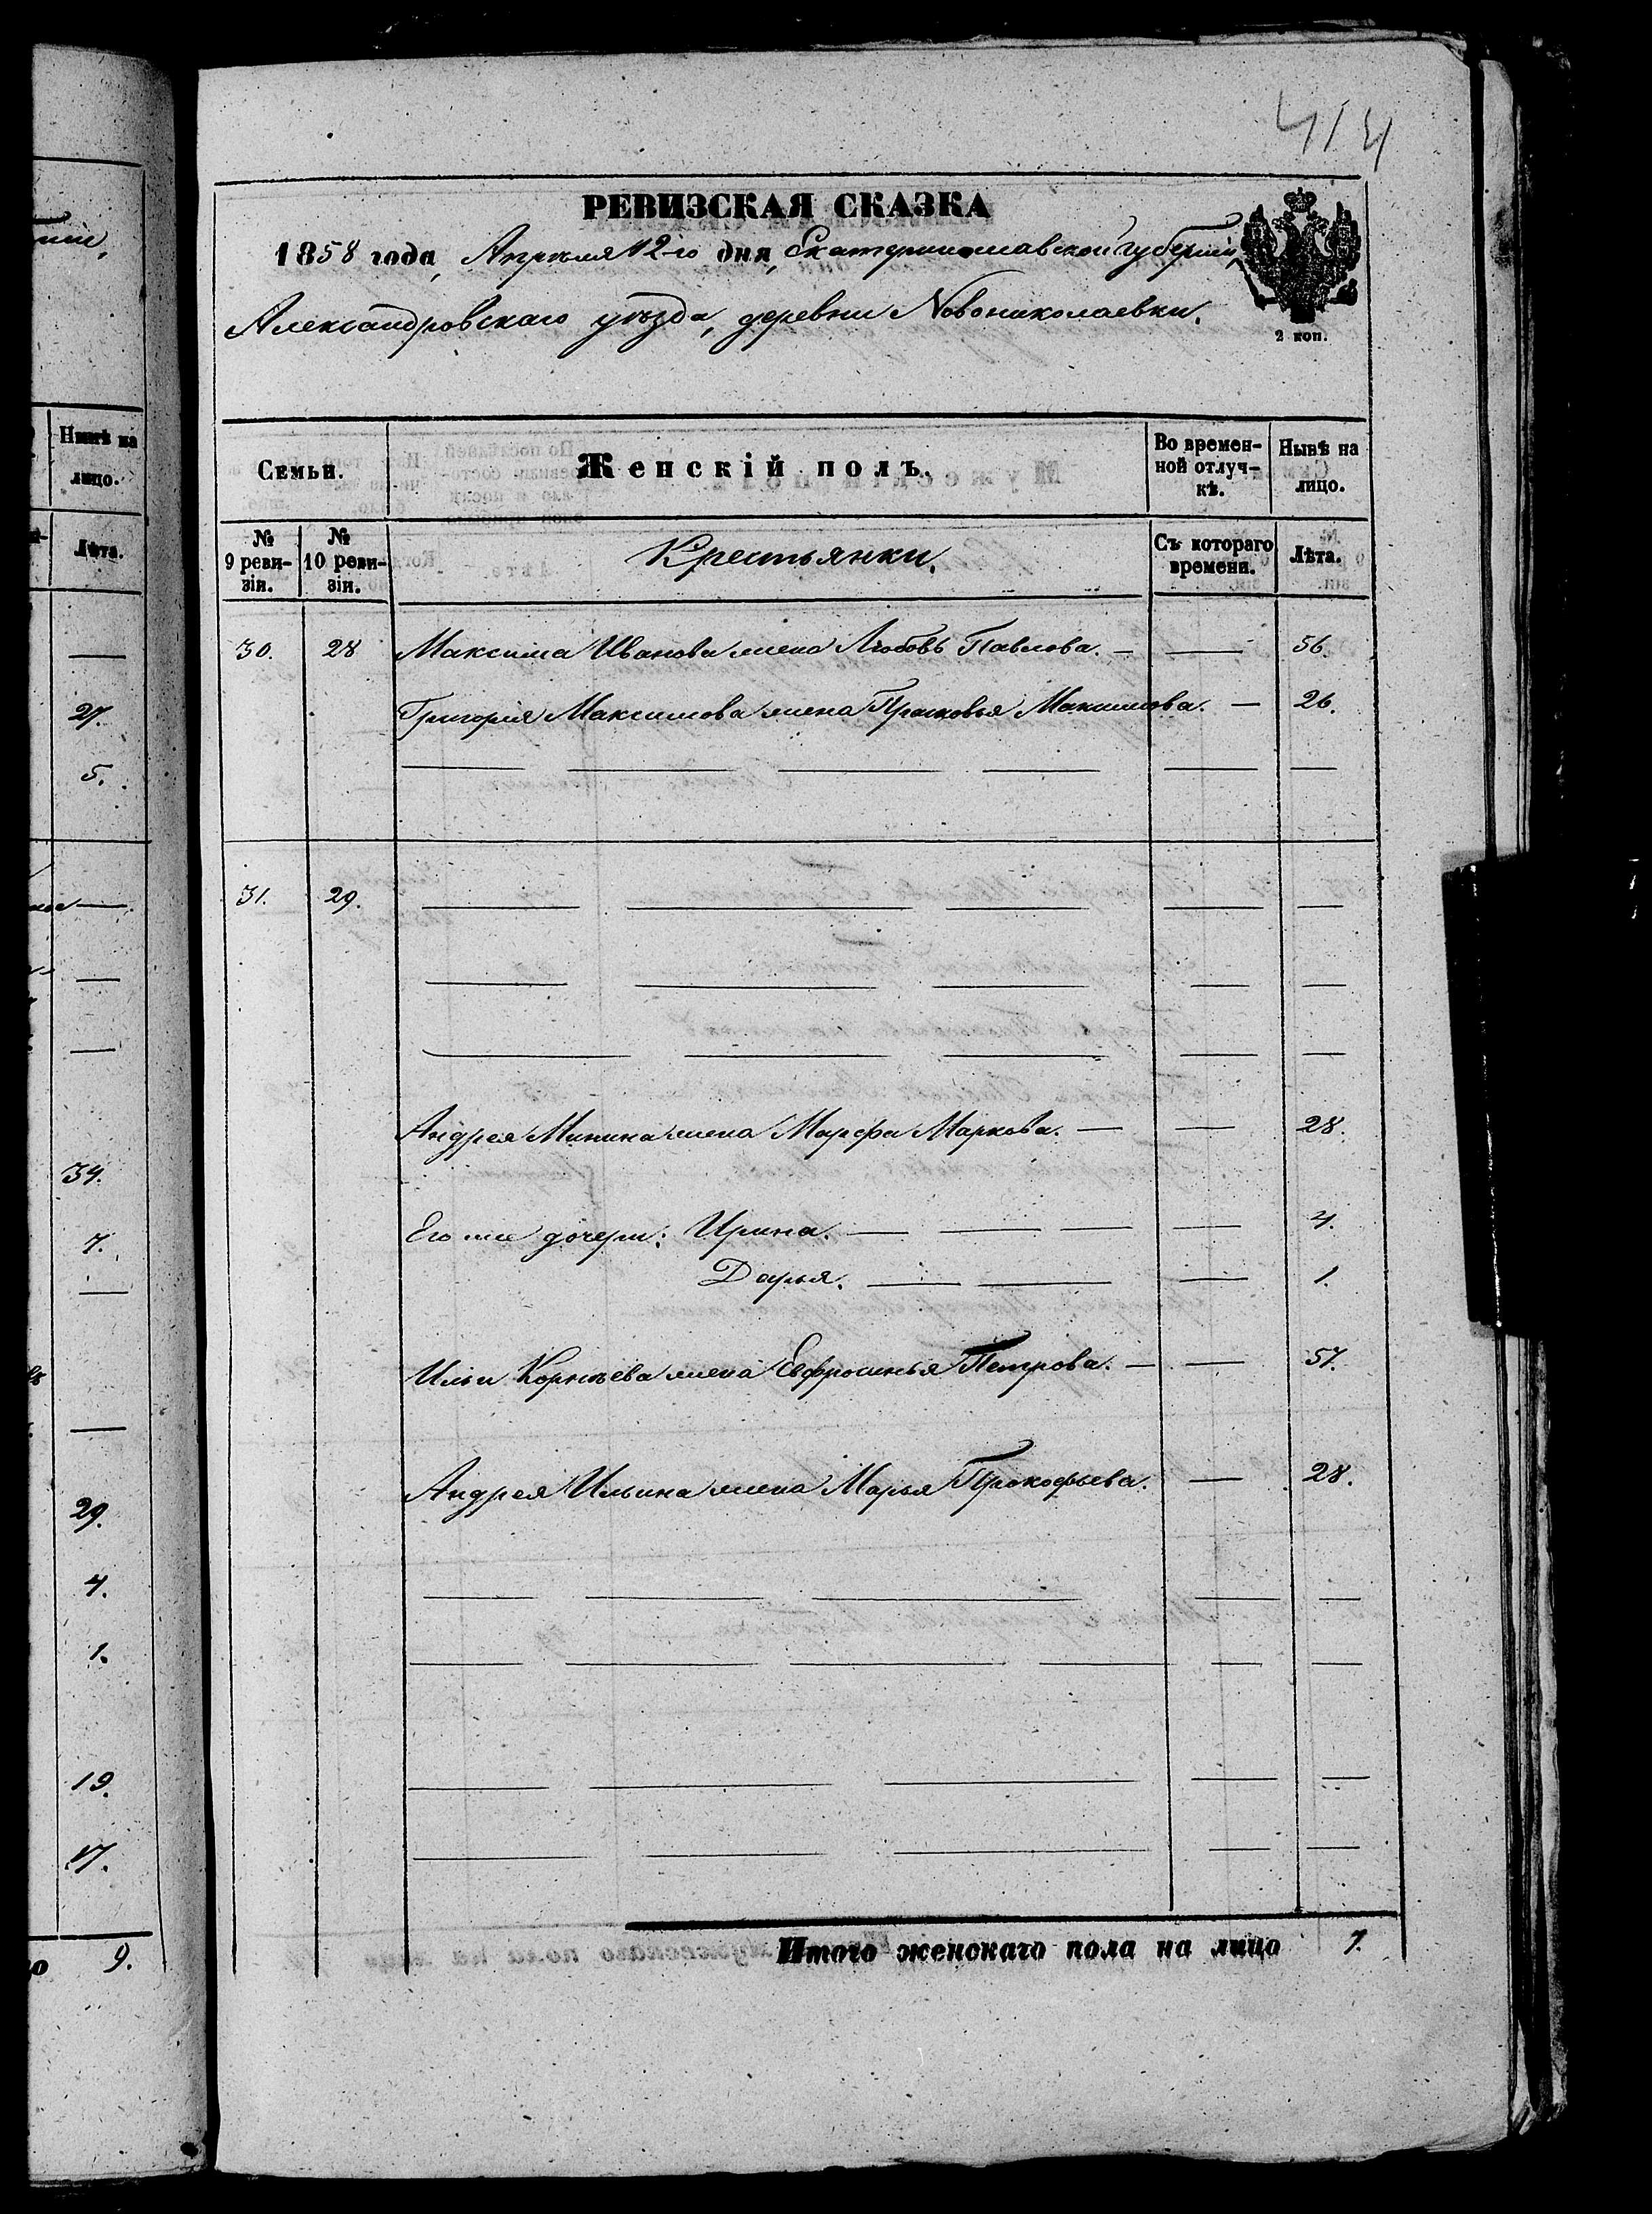 414
РЕВИЗСКАЯ СКАЗКА
1858 года, Апреля 12-го дня, Екатеринославской губернии,
Александровскаго уѣзда, деревни Новониколаевки.
2 коп.
Семьи. Женскій полъ. Во времен-ной отлуч-кѣ. Нынѣ на лицо.
№ 9 реви-зіи. № 10 реви-зіи. Крестьянки. Съ котораго времени. Лѣта.
30. 28 Максима Иванова жена Любовь Павлова. — — 56.
Григорія Максимова жена Прасковья Максимова. — 26.
31. 29.
Андрея Минина жена Марфа Маркова. — — 28.
Его же дочери: Ирина. — — — — 4.
Дарья. — — — 1.
Ильи Корнѣева жена Евфросинья Петрова. — — 57.
Андрея Ильина жена Марья Прокофьева. — 28.
Итого женскаго пола на лицо 7.
Нынѣ на
лицо.
Лѣта.
27.
5.
34.
7.
29.
4.
1.
19.
17.
9.